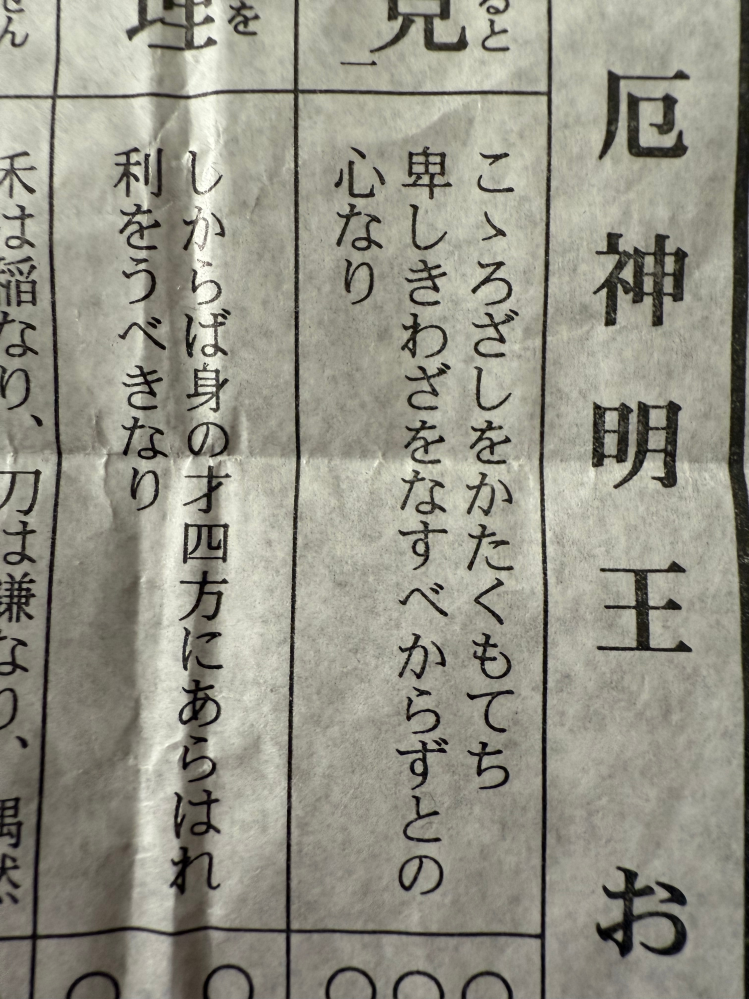 厄神明王 お
ると
見
一
こゝろざしをかたくもてち
卑しきわざをなすべからずとの
心なり
を
理
しからば身の才四方にあらはれ
利をうべきなり
せん
禾は稲なり、刀は鎌なり、偶然
○○○
○○